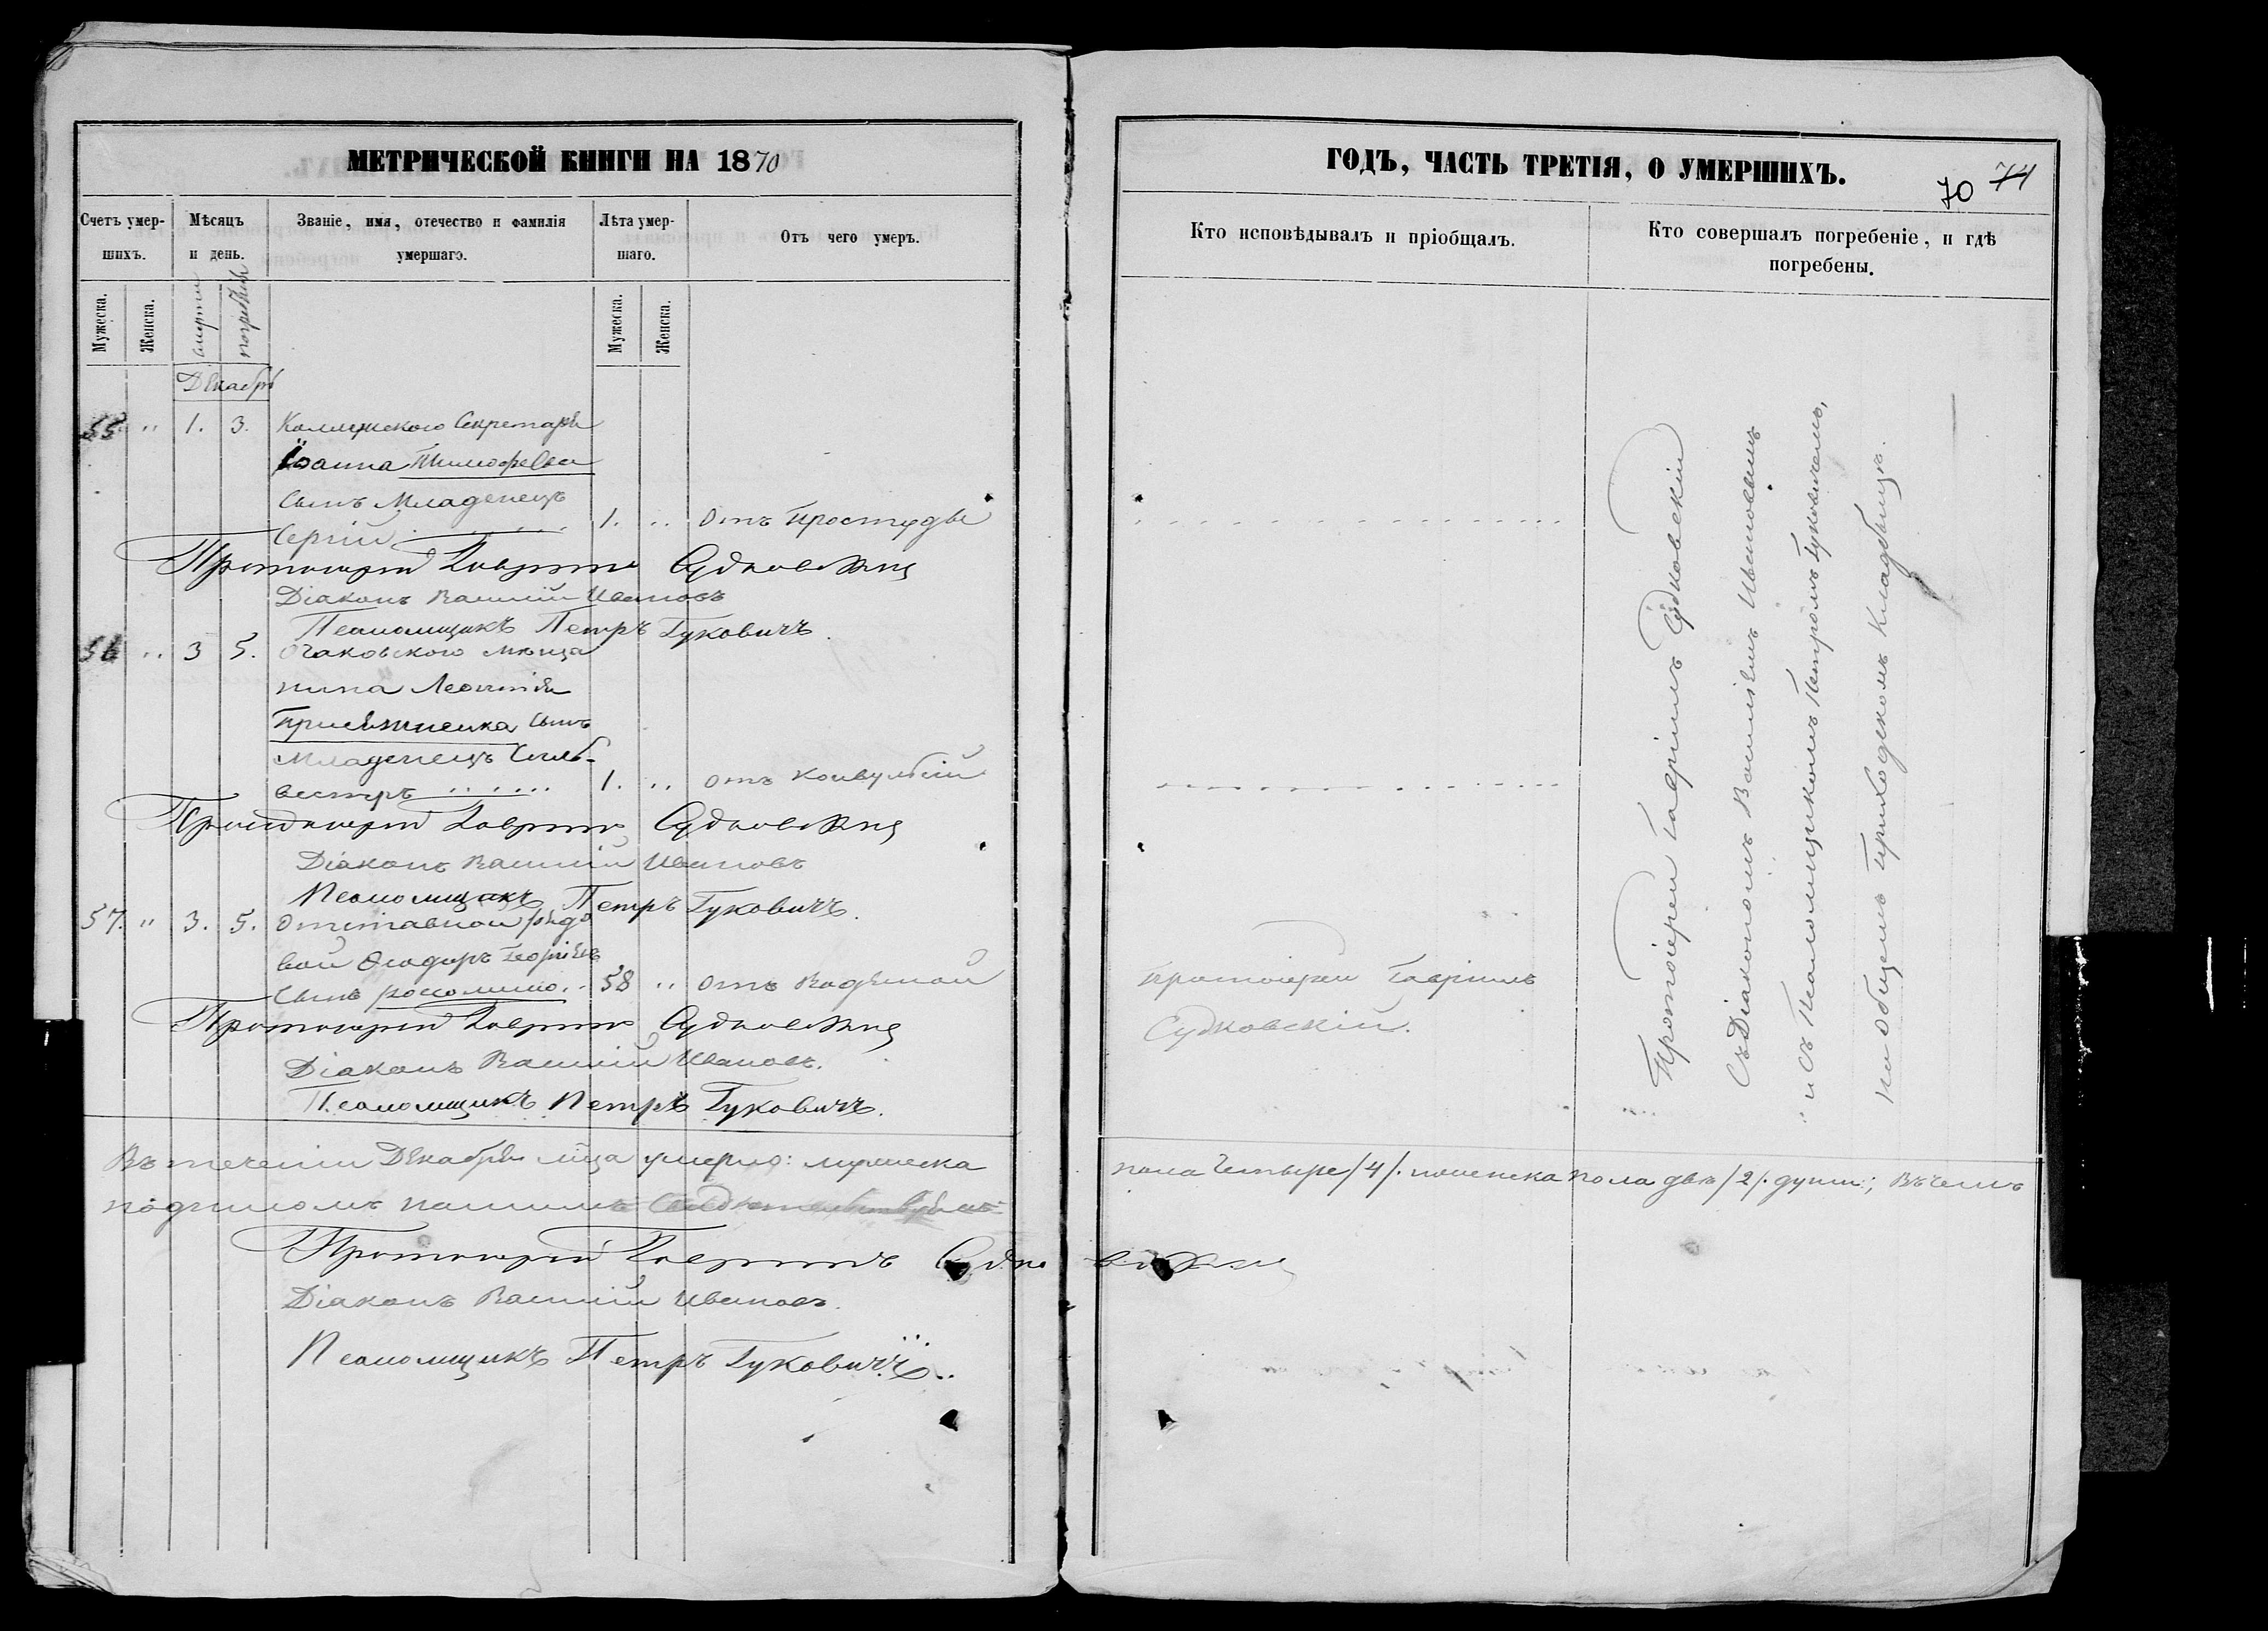 МЕТРИЧЕСКОЙ КНИГИ НА 1870
Счетъ умер-
шихъ.
Мѣсяцъ
и день.
Званіе, имя, отечество и фамилія
умершаго.
Лѣта умер-
шаго.
Отъ чего умеръ.
Мужеска.
Женска.
смерти
погребенія
Мужеска.
Женска.
Декабрь
55. " 1. 3. Коллежскаго Секретаря
Іоанна Тимофеева
сынъ Младенецъ
Сергій 1. " Отъ простуды
Протоіерей Гавріилъ Судковскій
Діаконъ Василій Ивановъ
Псаломщикъ Петръ Гуковичъ.
56 " 3 5. Очаковского мѣща
нина Леонтія
сынъ
Младенецъ Силь-
вестръ 1. " отъ конвульсій
Протоіерей Гавріилъ Судковскій
Діаконъ Василій Ивановъ
Псаломщикъ Петръ Гуковичъ.
57. " 3. 5. Отставной рядо
вой Ѳеодоръ Георгіевъ
сынъ 58 " отъ водяной
Протоіерей Гавріилъ Судковскій
Діаконъ Василій Ивановъ.
Псаломщикъ Петръ Гуковичъ.
Въ теченіи Декабря мѣсца умерло: мужеска
подписомъ нашимъ
Протоіерей Гавріилъ Судковскій
Діаконъ Василій Ивановъ.
Псаломщикъ Петръ Гуковичъ.
ГОДЪ, ЧАСТЬ ТРЕТІЯ, О УМЕРШИХЪ.
70 71
Кто исповѣдывалъ и пріобщалъ.
Кто совершалъ погребеніе, и гдѣ
погребены.
протоіерей Гавріилъ
Судковскій.
Протоіерей Гавріилъ Судковскій
съ Діакономъ Василіемъ Ивановымъ
и съ Псаломщикомъ Петромъ Гуковичемъ,
на общемъ приходскомъ кладбищѣ.
пола четыре /4/. и женска пола двѣ /2/. души; въ чемъ